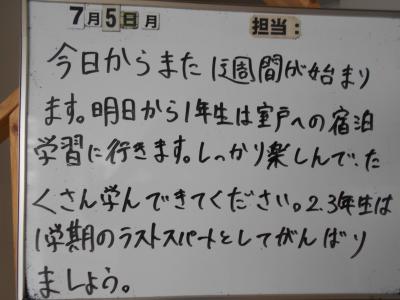 7月5日月 担当:
今日からまた1週間が始まり
ます。明日から1年生は室戸への宿泊
学習に行きます。しっかり楽しんで、た
くさん学んできてください。2.3年生は
1学期のラストスパートとしてがんばり
ましょう。